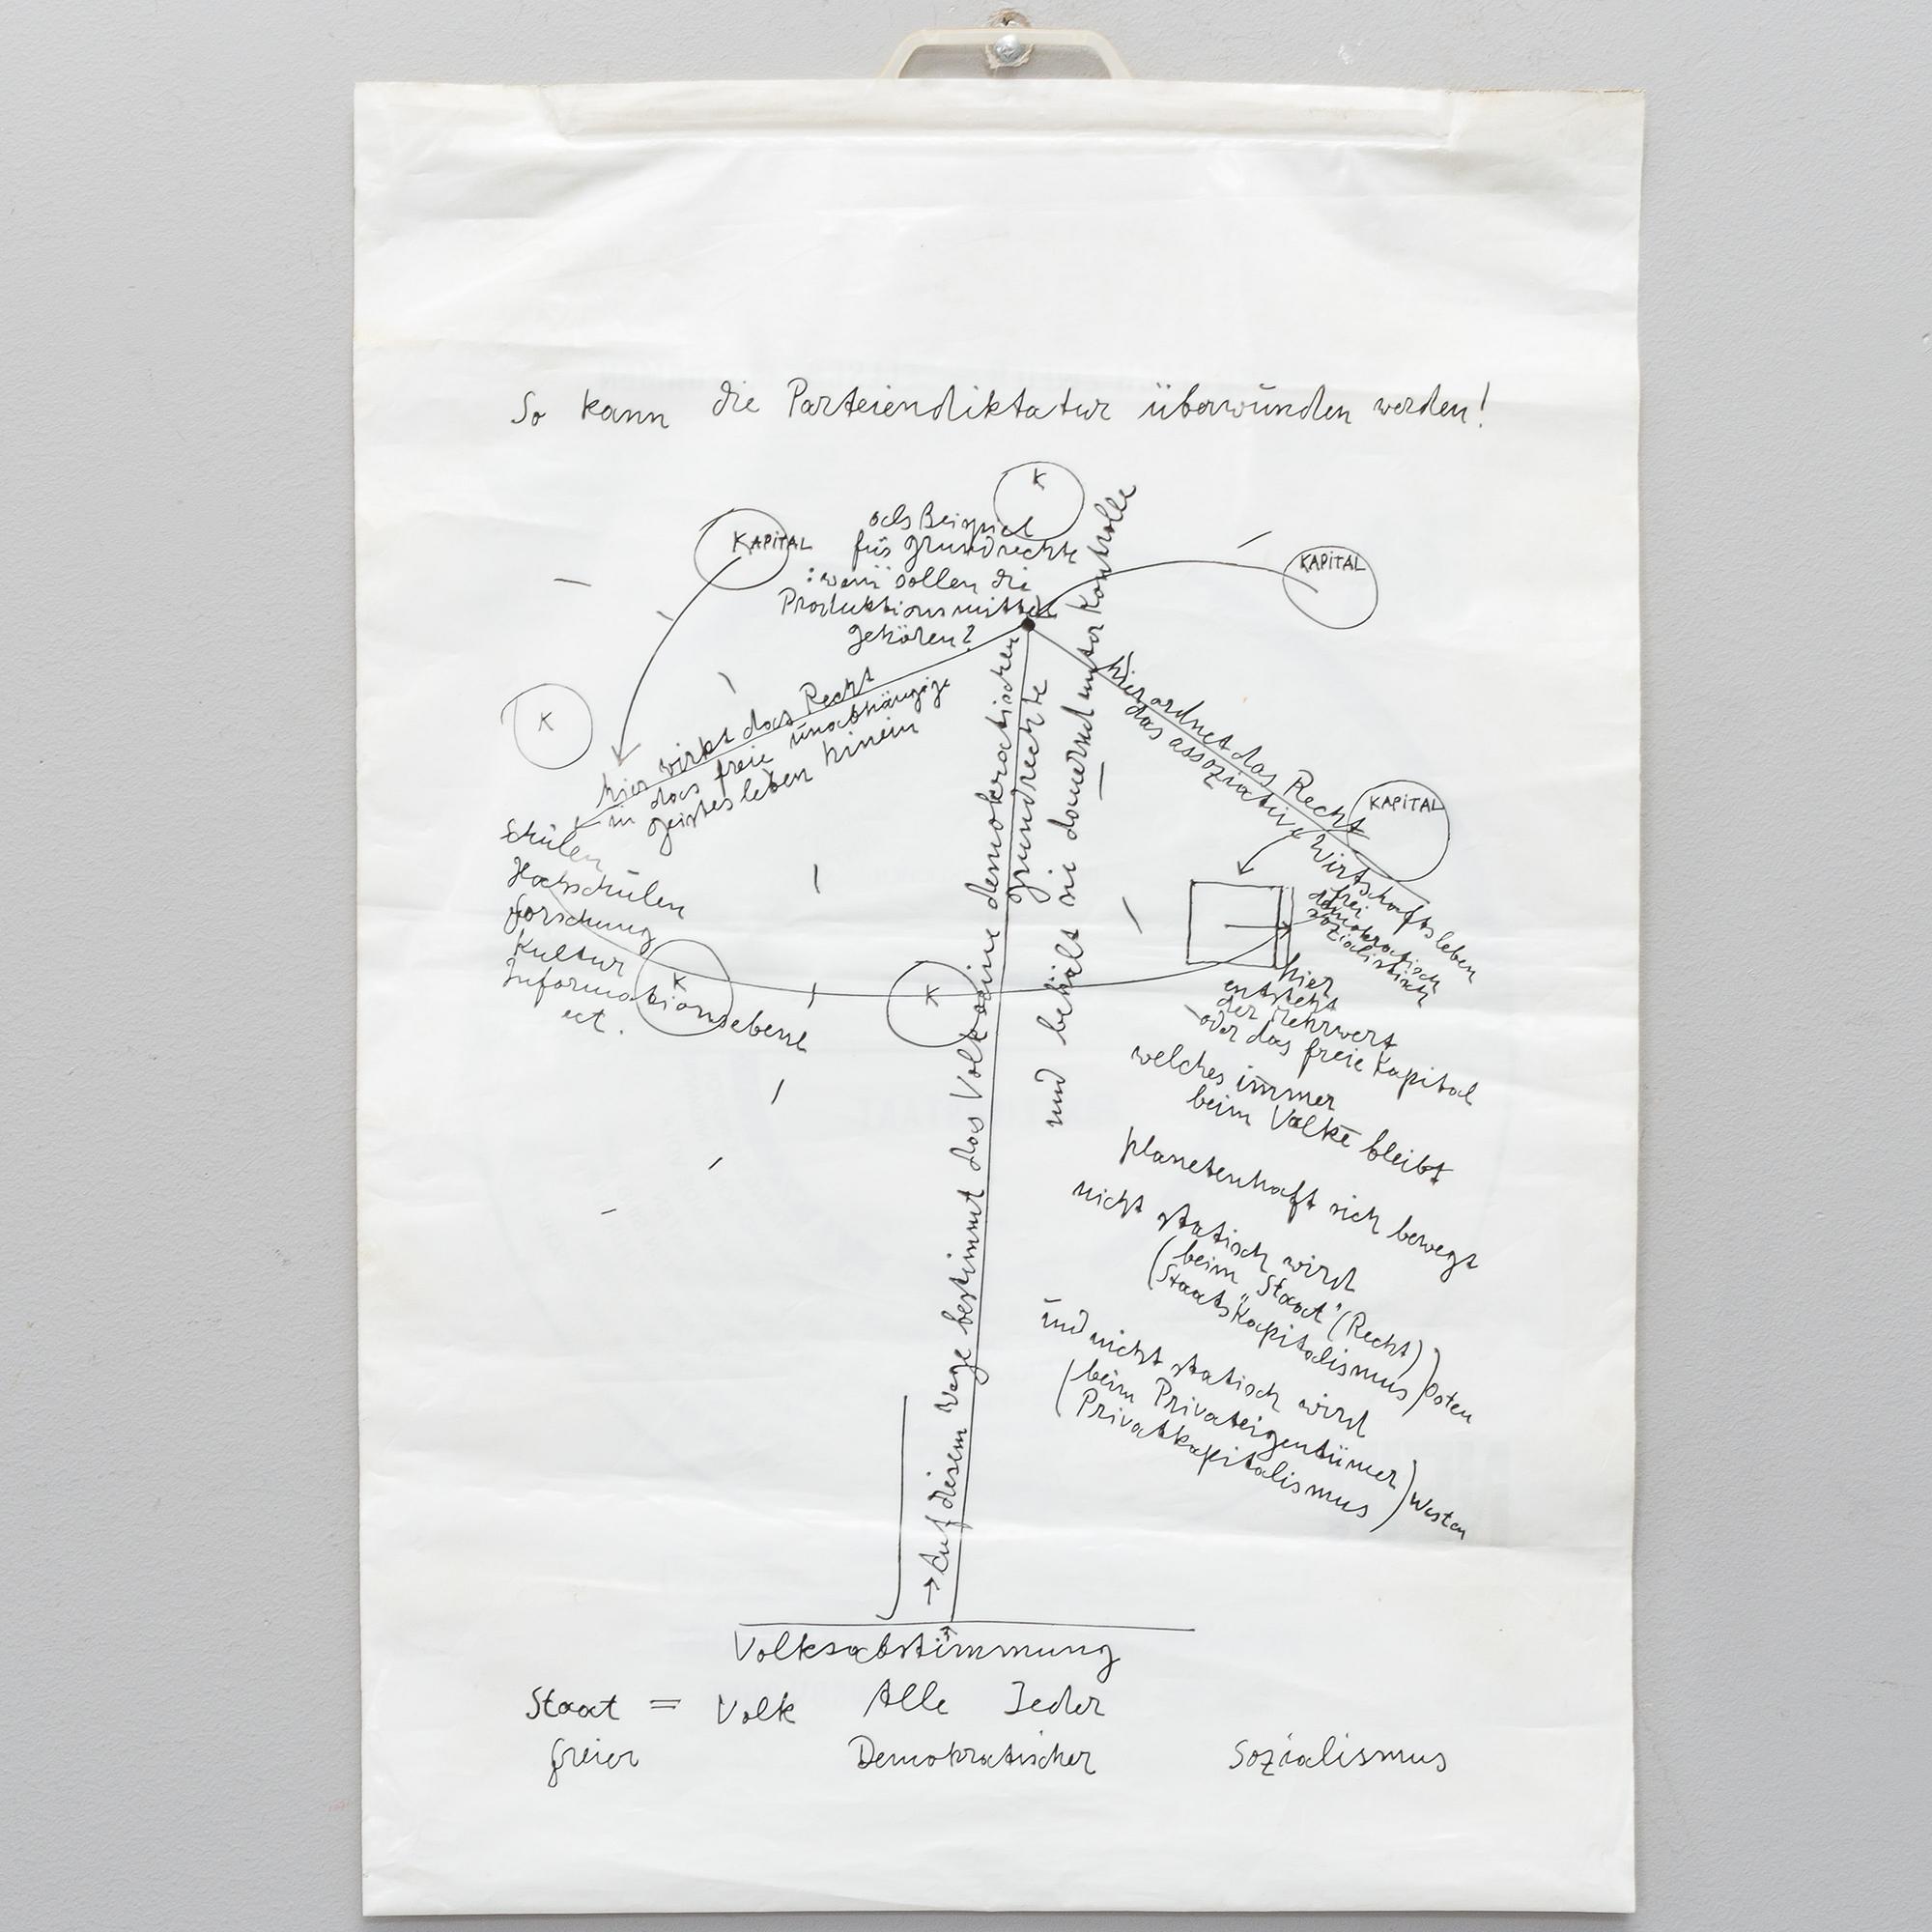 So kann die Parteiendiktatur überwunden werden!
K
KAPITAL
als Beispiel
für Grundrechte
: wem sollen die
Produktionsmittel
gehören?
KAPITAL
K
hier wirkt das Recht
in das freie unabhängige
Geistesleben hinein
Schulen
Hochschulen
Forschung
Kultur
Informationsebene
ect.
K
K
→ Auf diesem Wege bestimmt das Volk seine demokratischen
Grundrechte
und behält sie dauernd unter Kontrolle
hier ordnet das Recht
das assoziative Wirtschaftsleben
KAPITAL
frei
demokratisch
sozialistisch
hier
entsteht
der Mehrwert
oder das freie Kapital
welches immer
beim Volke bleibt
planetenhaft sich bewegt
nicht statisch wird
(beim "Staat" (Recht)
(Staatskapitalismus) Osten
und nicht statisch wird
(beim Privateigentümer
Privatkapitalismus) Westen
Volksabstimmung
Staat = Volk Alle Jeder
freier Demokratischer Sozialismus